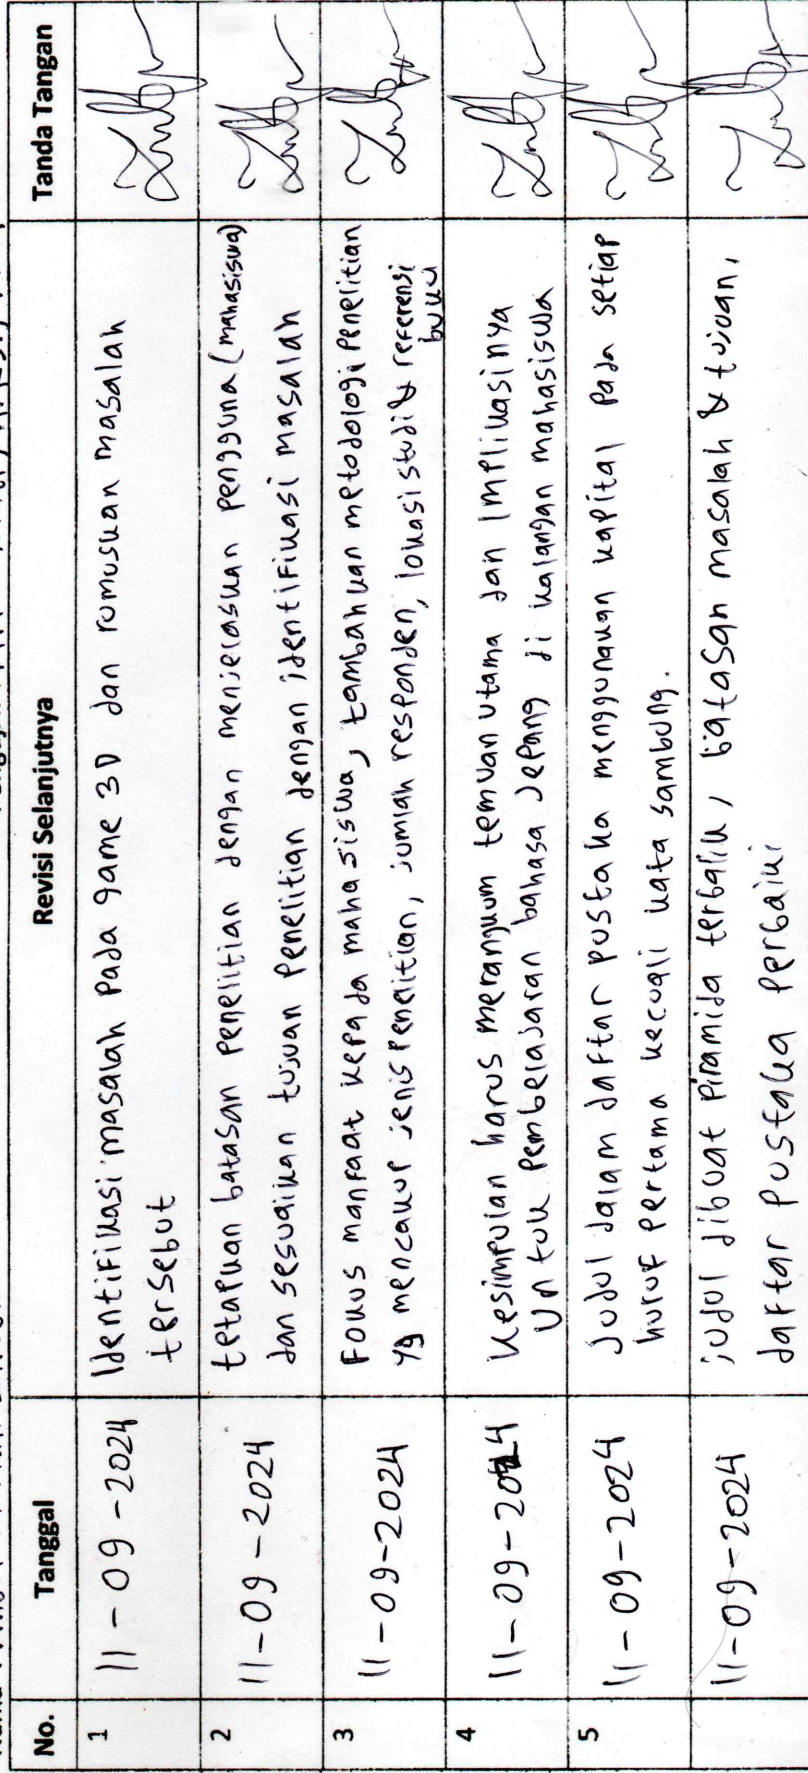 No. Tanggal Revisi Selanjutnya Tanda Tangan
1 11-09-2024 Identifikasi masalah pada game 3D dan rumuskan masalah
tersebut
2 11-09-2024 tetapkan batasan penelitian dengan menjelaskan pengguna (mahasiswa)
dan sesuaikan tujuan penelitian dengan identifikasi masalah
3 11-09-2024 Fokus manfaat kepada mahasiswa, tambahkan metodologi penelitian
yg mencakup jenis penelitian, jumlah responden, lokasi studi & referensi
buku
4 11-09-2024 Kesimpulan harus merangkum temuan utama dan implikasinya
untuk pembelajaran bahasa Jepang di kalangan mahasiswa
5 11-09-2024 Judul dalam daftar pustaka menggunakan kapital pada setiap
huruf pertama kecuali kata sambung.
11-09-2024 judul dibuat piramida terbalik, batasan masalah & tujuan,
daftar pustaka perbaiki